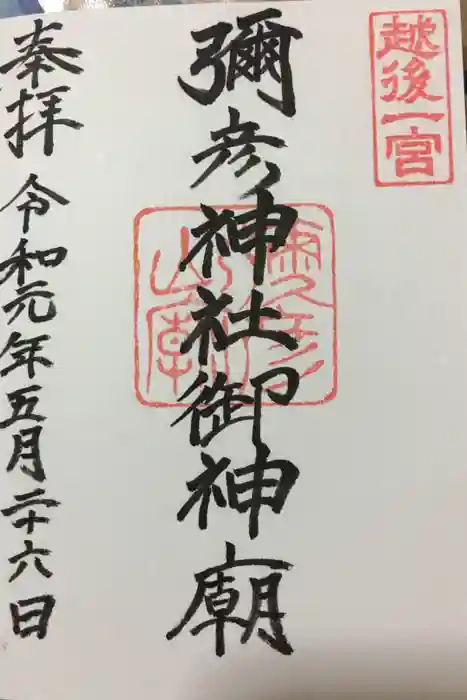 越後一宮
彌彦神社御神廟
奉拝 令和元年五月二十六日